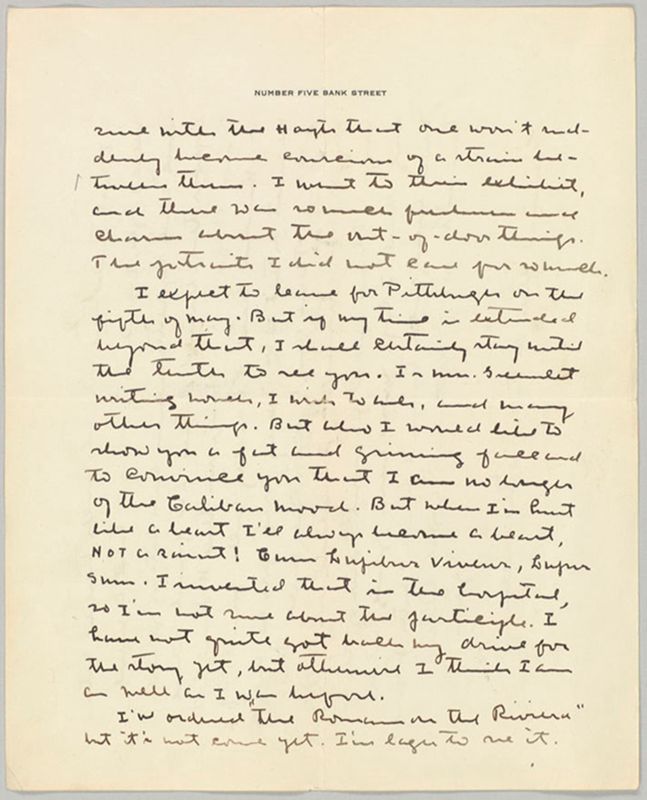 NUMBER FIVE BANK STREET
sure with the Hoyts that one won't sud-
denly become conscious of a strain be-
tween them. I went to their exhibit,
and there was so much freshness and
charm about the out-of-door things.
The portraits I did not care for so much.
I expect to leave for Pittsburgh on the
fifth of May. But if my time is extended
beyond that, I shall certainly stay until
the tenth to see you. Is Mrs.
writing novels, I wish to ask, and many
other things. But also I would like to
show you a fat and grinning face and
to convince you that I am no longer
of the Caliban mood. But when I'm hurt
like a beast I'll always become a beast,
NOT a saint! Cum Lupibus Vivens, Lupus
Sum. I invented that in the hospital,
so I'm not sure about the participle. I
have not quite got back my drive for
the story yet, but otherwise I think I am
as well as I was before.
I've ordered "the Romance on the Riviera"
but it's not come yet. I'm eager to see it.